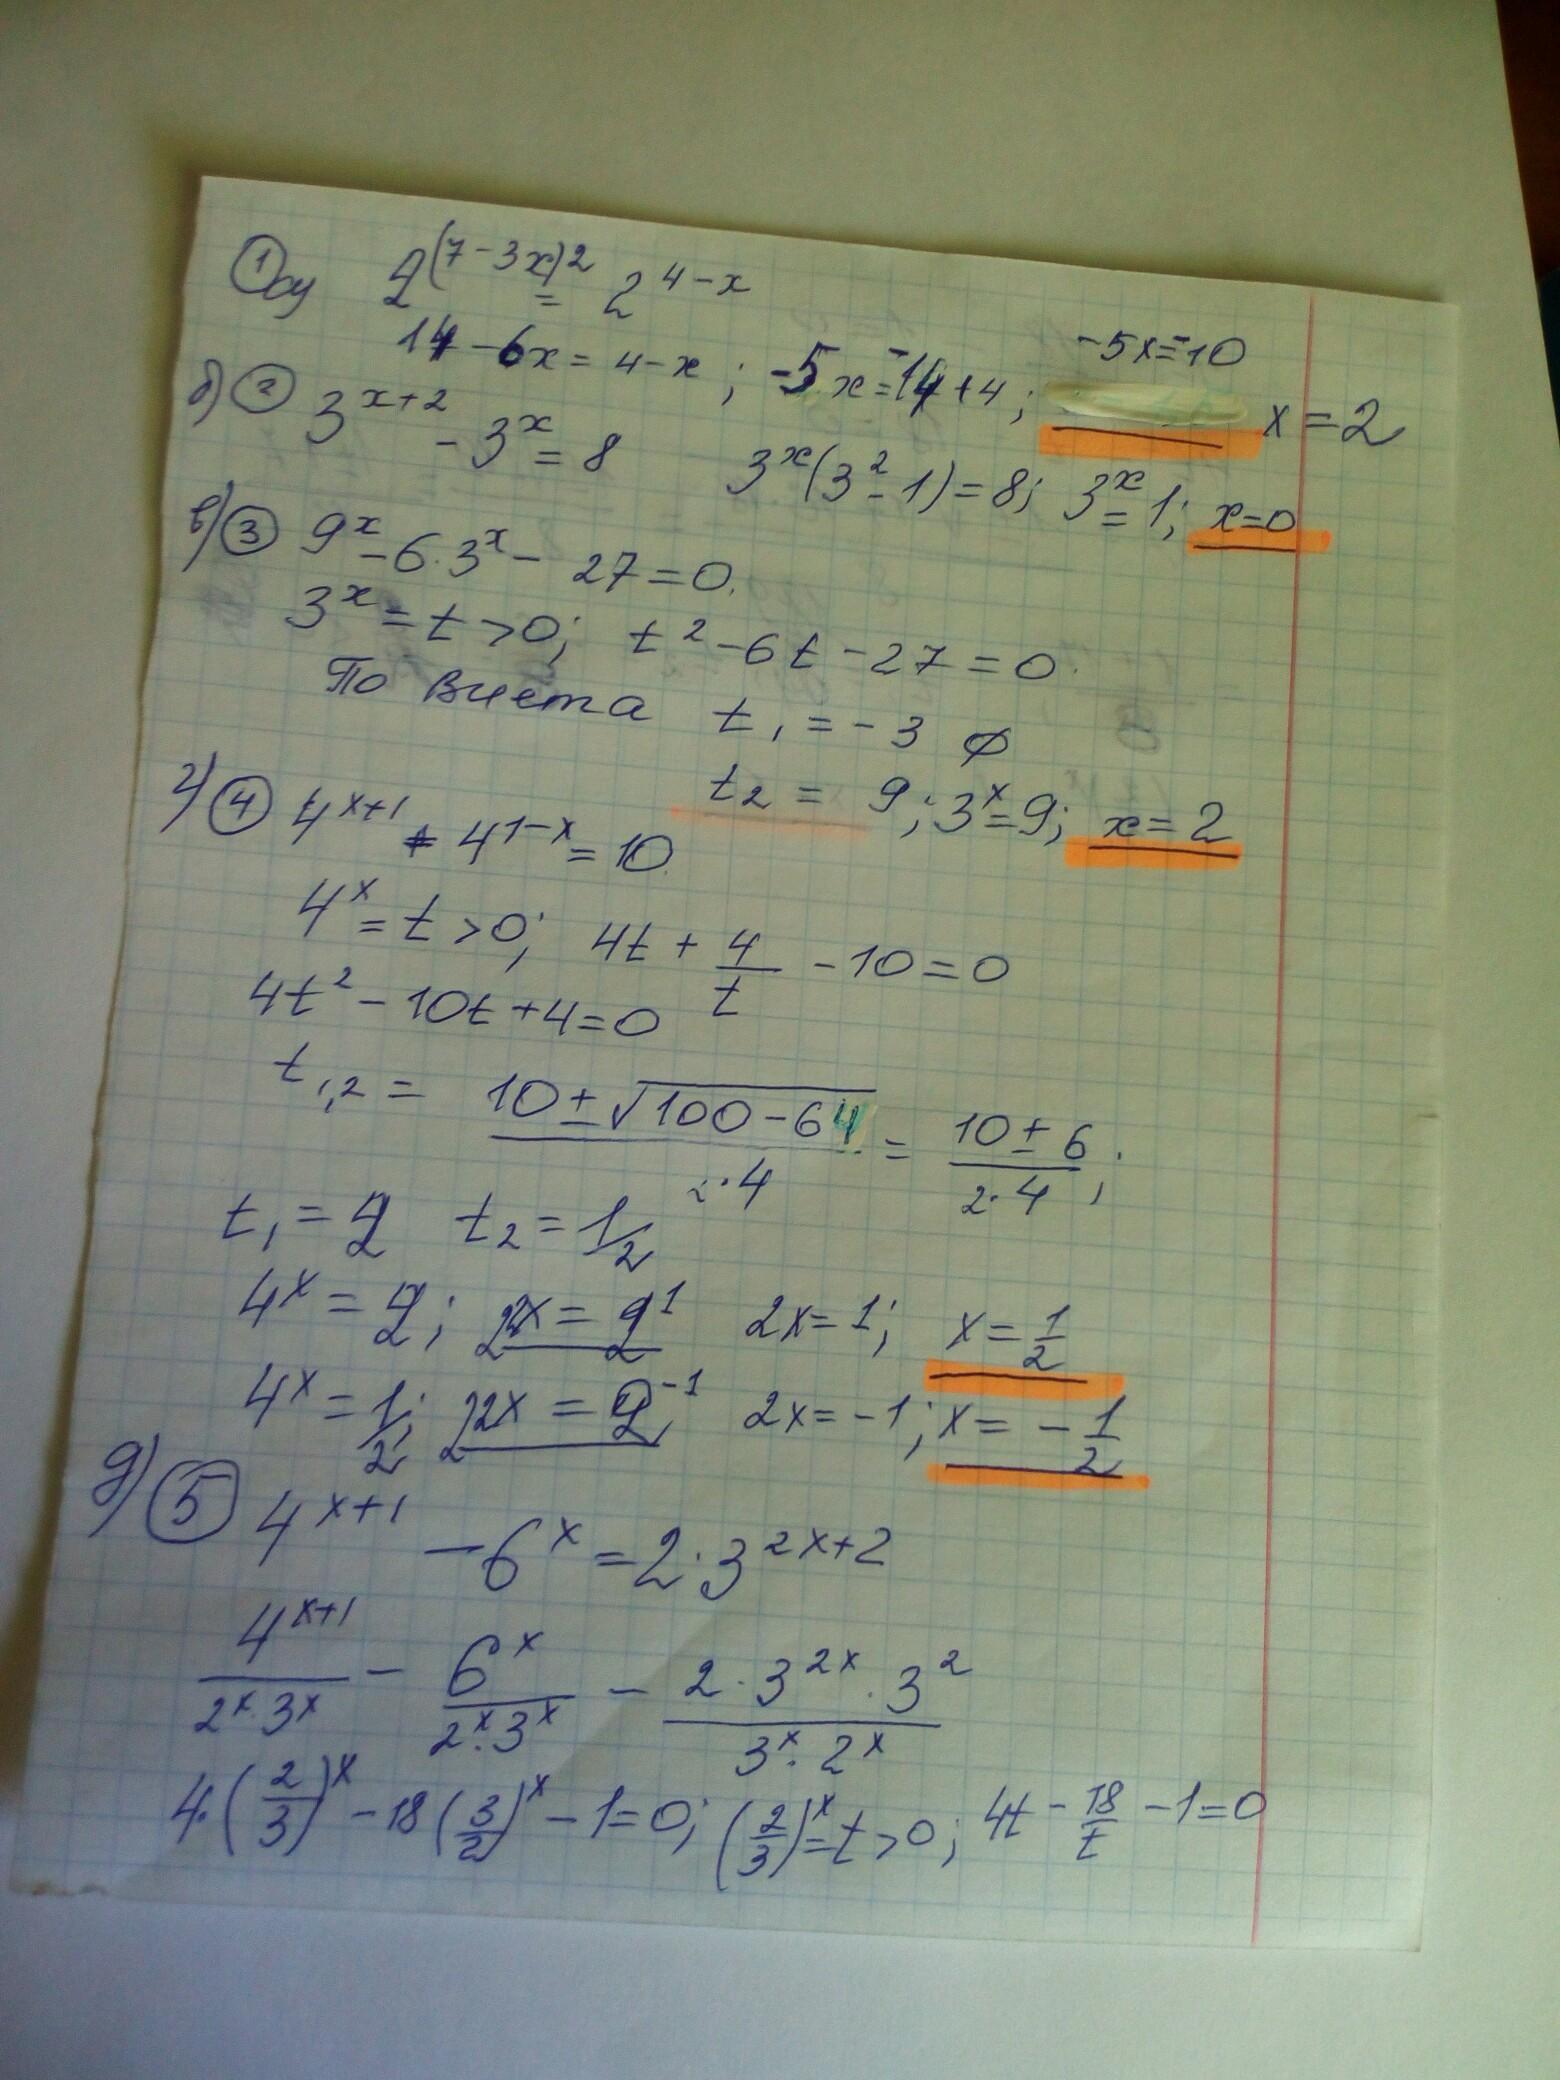 ① а) 2^(7-3x)2 = 2^4-x
14-6x = 4-x; -5x = -14+4; -5x = -10 x = 2
б) ② 3^x+2 - 3^x = 8 3^x(3^2-1) = 8; 3^x = 1; x = 0
в) ③ 9^x - 6·3^x - 27 = 0.
3^x = t > 0; t^2 - 6t - 27 = 0.
По Виета t₁ = -3 ∅
t₂ = 9; 3^x = 9; x = 2
г) ④ 4^x+1 + 4^1-x = 10
4^x = t > 0; 4t + 4/t - 10 = 0
4t^2 - 10t + 4 = 0
t₁,₂ = (10 ± √100-64)/2·4 = (10 ± 6)/2·4;
t₁ = 2 t₂ = 1/2
4^x = 2; 2^2x = 2^1 2x = 1; x = 1/2
4^x = 1/2; 2^2x = 2^-1; 2x = -1; x = -1/2
д) ⑤ 4^x+1 - 6^x = 2·3^2x+2
4^x+1/2^x·3^x - 6^x/2^x·3^x - 2·3^2x·3^2/3^x·2^x
4·(2/3)^x - 18(3/2)^x - 1 = 0; (2/3)^x = t > 0; 4t - 18/t - 1 = 0